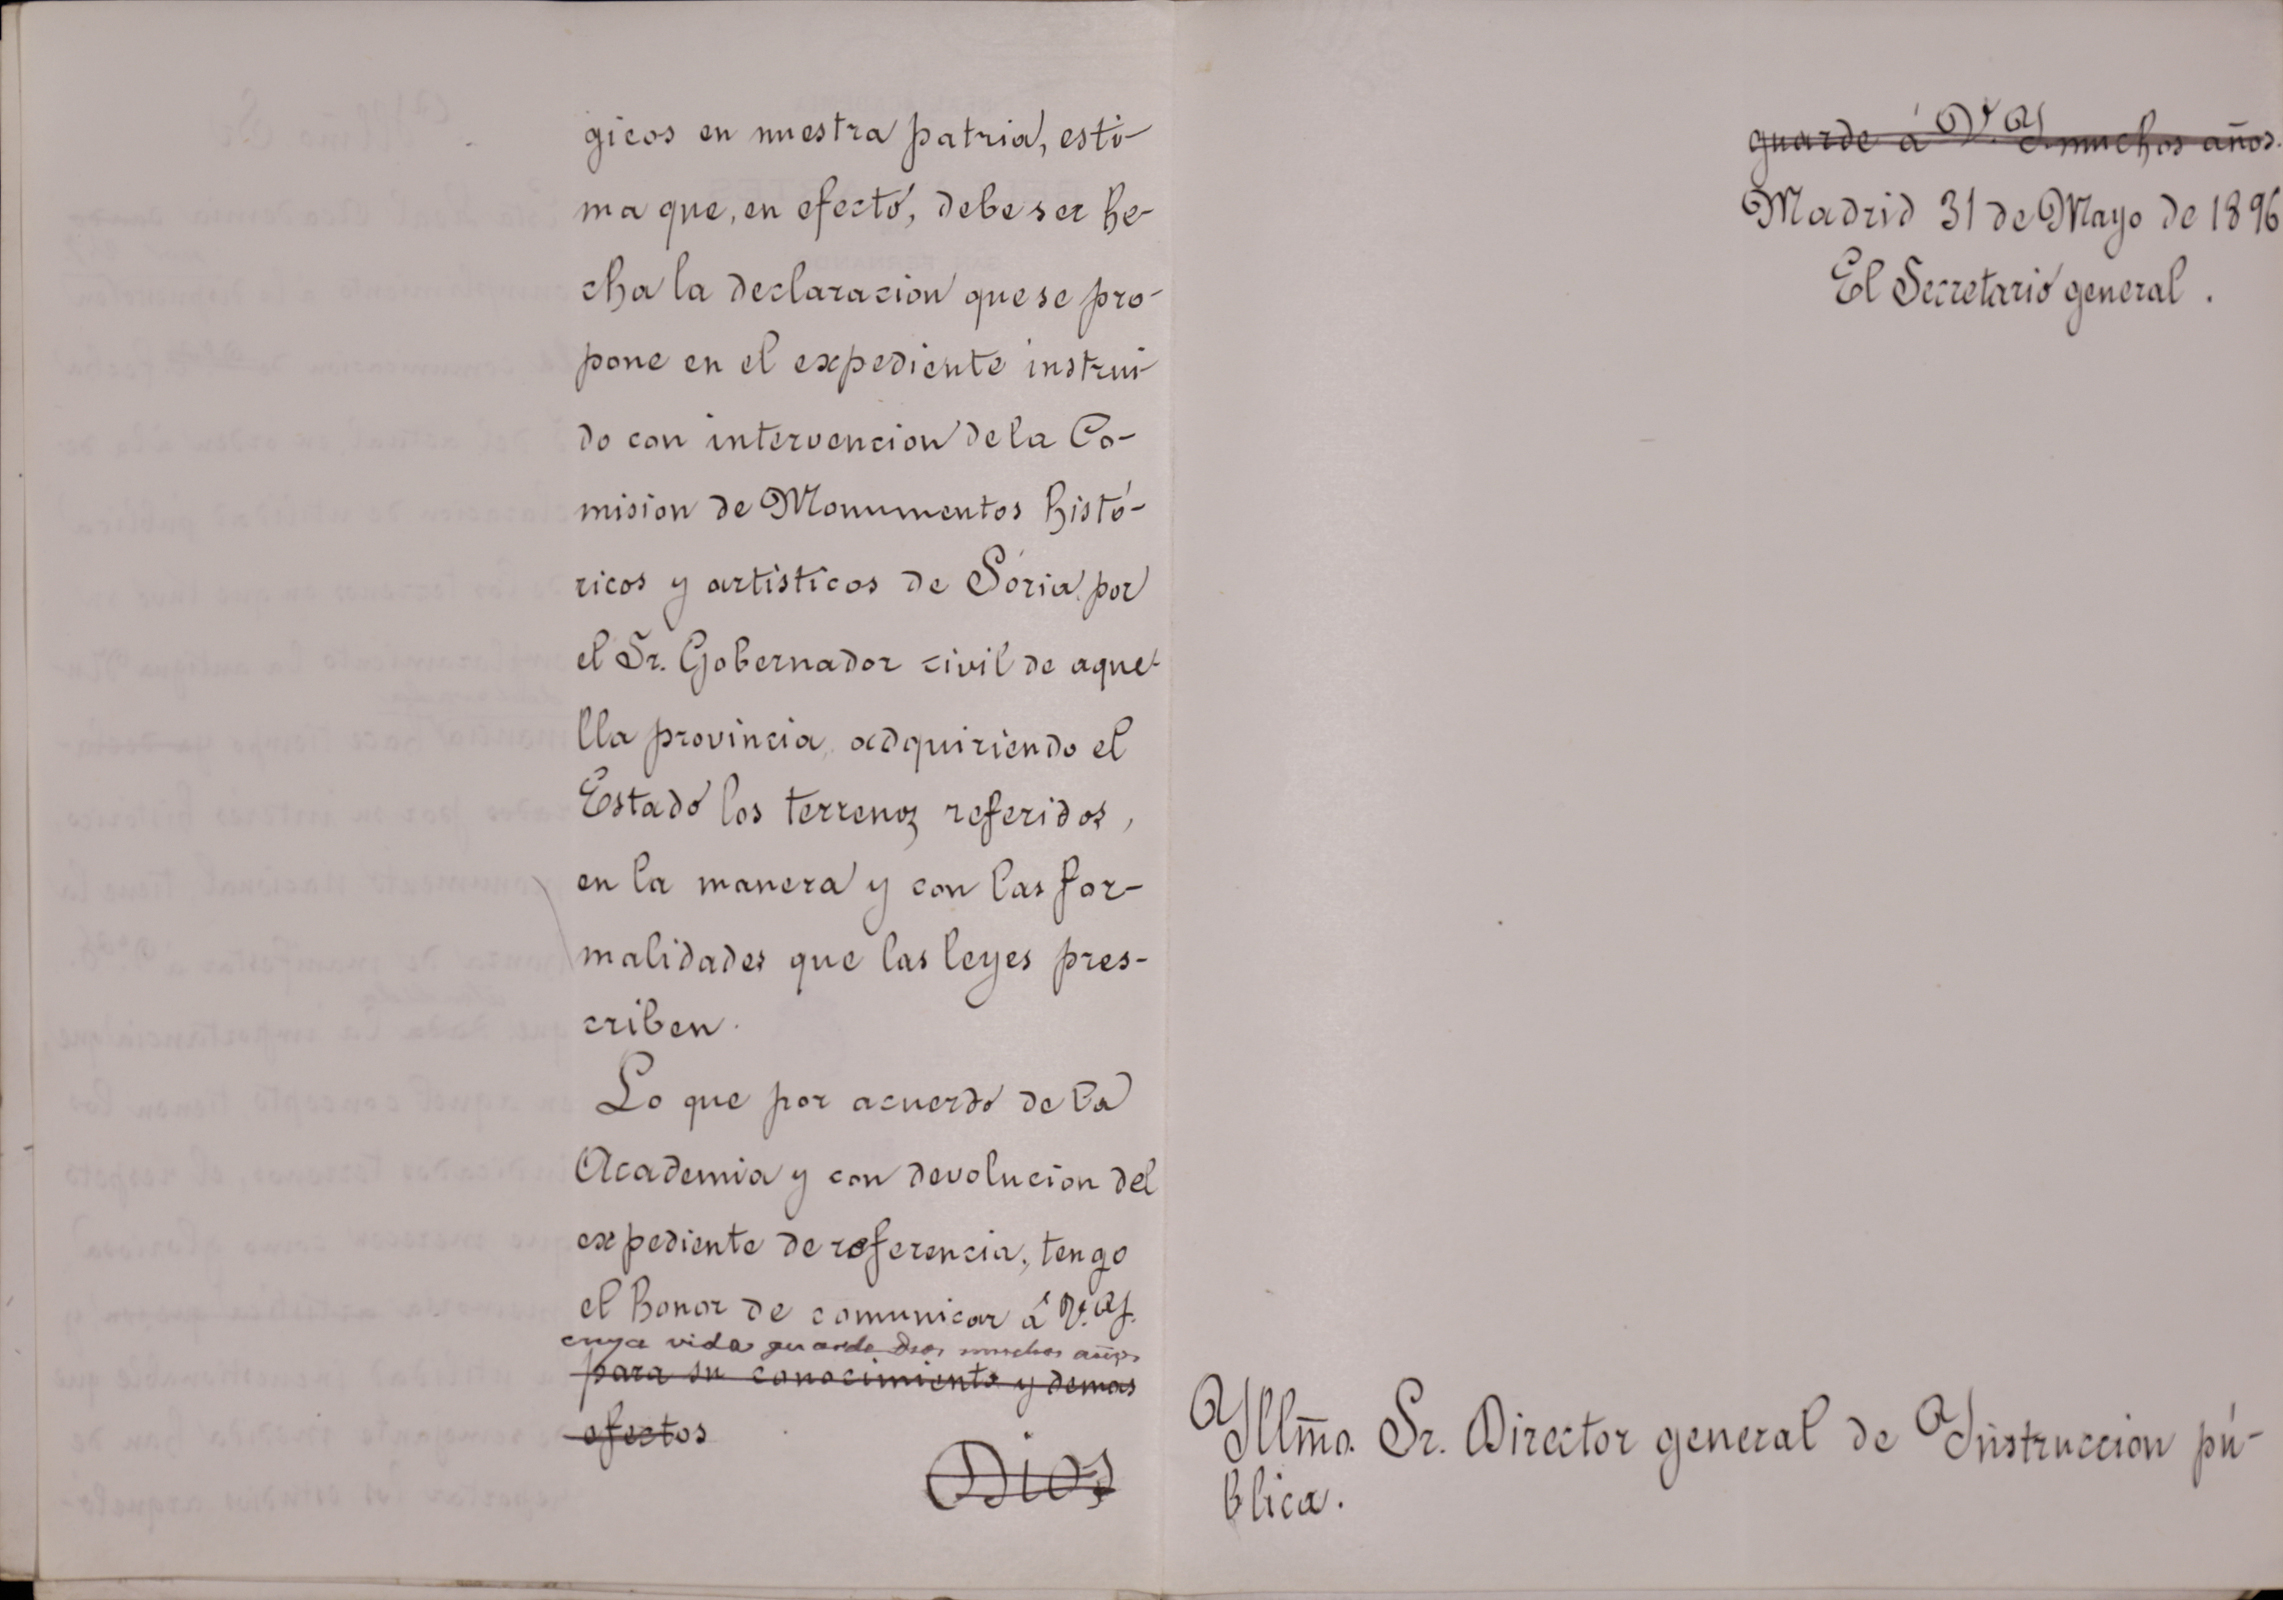 gicos en nuestra patria, esti-
ma que, en efecto, debe ser he-
cha la declaracion que se pro-
pone en el expediente instrui-
do con intervencion de la Co-
mision de Monumentos histó-
ricos y artisticos de Soria, por
el Sr. Gobernador civil de aque-
lla provincia, adquiriendo el
Estado los terrenos referidos,
en la manera y con las for-
malidades que las leyes pres-
criben.
Lo que por acuerdo de la
Academia y con devolucion del
expediente de referencia, tengo
el honor de comunicar á V. I.
cuya vida guarde Dios muchos años
para su conocimiento y demas
efectos
Dios
guarde á V. I. muchos años.
Madrid 31 de Mayo de 1896
El Secretario general.
Illmo. Sr. Director general de Instruccion pú-
blica.